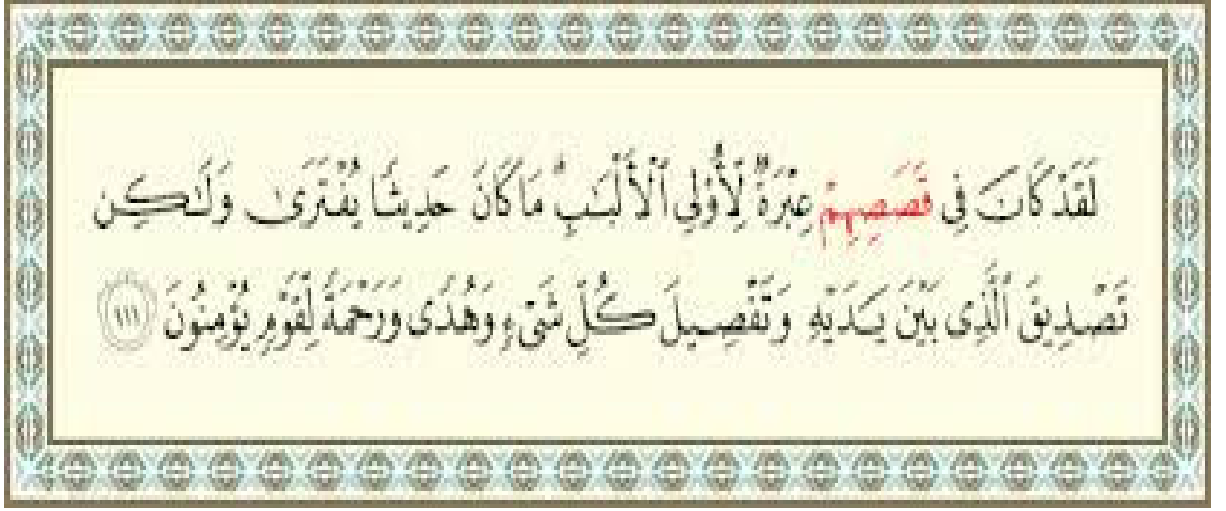 لَقَدْ كَانَ فِي قَصَصِهِمْ عِبْرَةٌ لِّأُوْلِي ٱلْأَلْبَٰبِ مَا كَانَ حَدِيثًا يُفْتَرَىٰ وَلَٰكِن
تَصْدِيقَ ٱلَّذِى بَيْنَ يَدَيْهِ وَتَفْصِيلَ كُلِّ شَىْءٍ وَهُدًى وَرَحْمَةً لِّقَوْمٍ يُؤْمِنُونَ ١١١